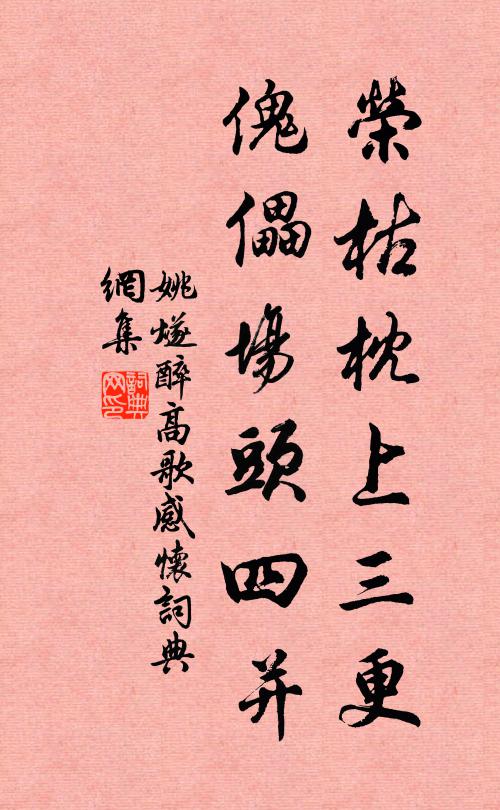 榮枯枕上三更
傀儡場頭四并
姚燧醉高歌感懷詞典
網集
詞典網印